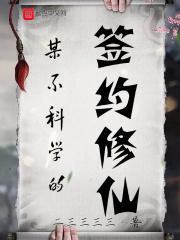 某不科学的
签约修仙
二三三三三 著